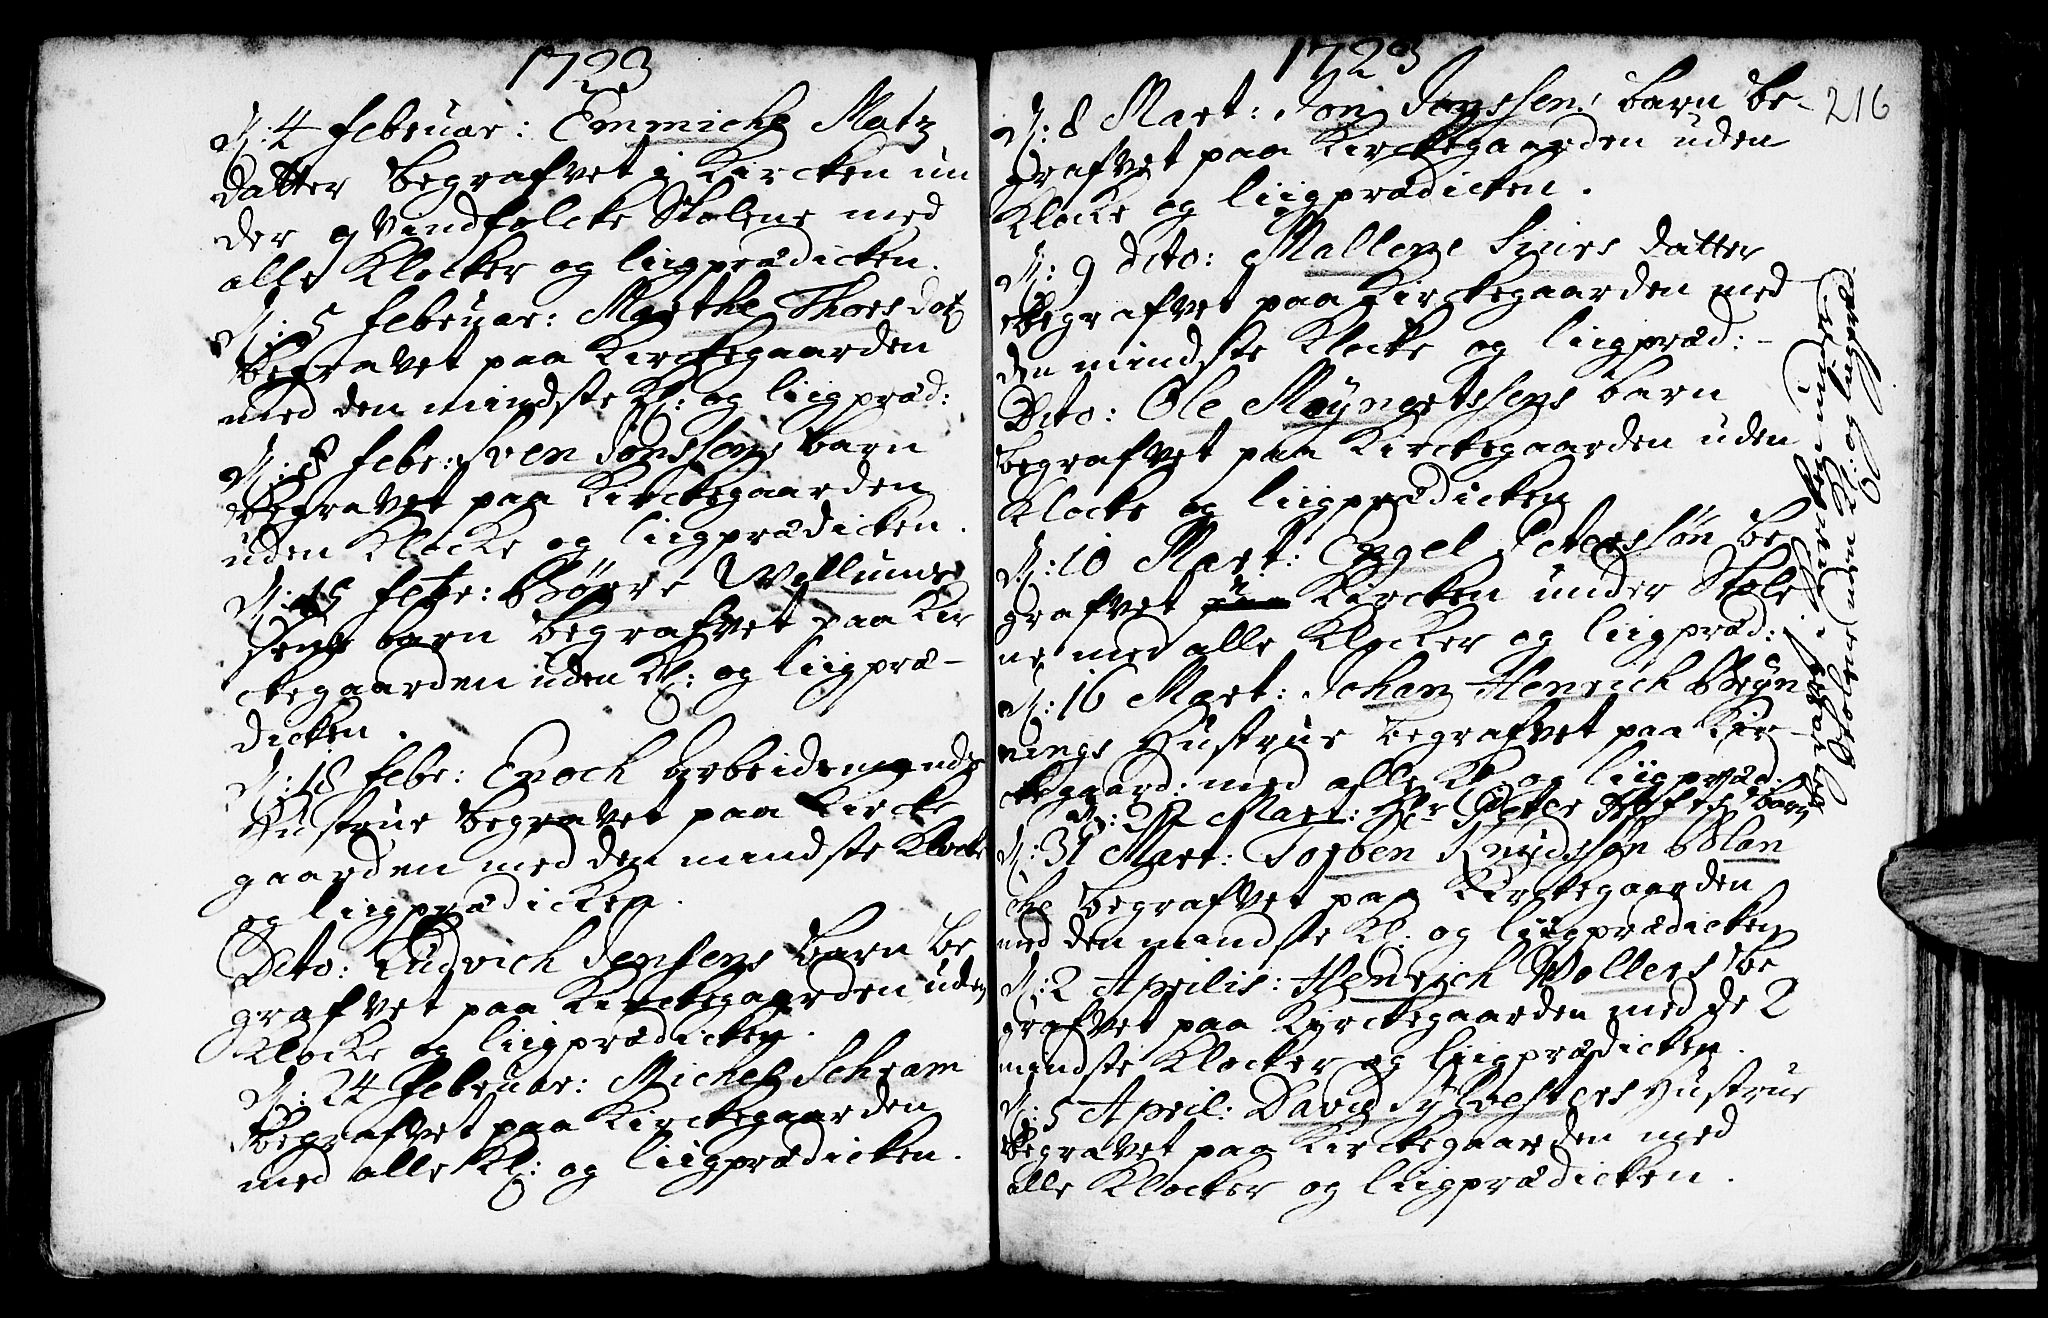 1723
N: 4 Februar: Emmiche Matz
datter begrafvet i Kircken un
der qvindfolcke Stolene med
alle Klocker og liigprædicken.
N: 5 Februar: Marthe Thoesdot
begravet paa Kirckegaarden
med den mindste Kl: og liigpræd:
N: 8 Febr: Sven Jonssens barn
begravet paa Kirckegaarden
uden Klocke og liigprædicken.
N: 15 Febr: Børre Wellums
sens barn begrafvet paa Kir
ckegaarden uden Kl: og liigpræ-
dicken.
N: 18 Febr: Enoch Arbeidsmands
Hustrue begravet paa Kircke
gaarden med den mindste Klocke
og liigprædicken.
Dito: Ludvich Jensens barn be
grafvet paa Kirckegaarden uden
Klocke og liigprædicken.
N: 24 Februar: Michel Schram
begrafvet paa Kirckegaarden
med alle Kl: og liigprædicken.
1723
216
N: 8 Mart: Jon Jonssens barn be-
grafvet paa Kirckegaarden uden
Klocke og liigprædicken.
N: 9 dito: Mallene Siurs datter
begrafvet paa Kirckegaarden med
den mindste Klocke og liigpræd:-
Dito: Ole Møyngetssens barn
begrafvet paa Kirckegaarden uden
Klocke og liigprædicken
N: 10 Mart: Engel Peterssøn be
grafvet i Kircken under Stole
ne med alle Klocker og liigpræd:
N: 16 Mart: Johan Henrich Bryn
nings Hustrue begrafvet paa Kir-
ckegaard: med alle Kl: og liigpræd.
Mart: Hr Peter barn
begravet i Kircken under
Stolene uden Kl: og liigpræd.
N: 31 Mart: Torben Knudssøn Blan
che begrafvet paa Kirckegaarden
med den mindste Kl: og liigprædicken
N: 2 Aprilis: Henrich Wollers be
grafvet paa Kyrckegaarden med de 2
mindste Klocker og liigprædicken.
N: 5 April: David Sylvesters Hustrue
begravet paa Kirckegaarden med
alle Klocker og liigprædicken.